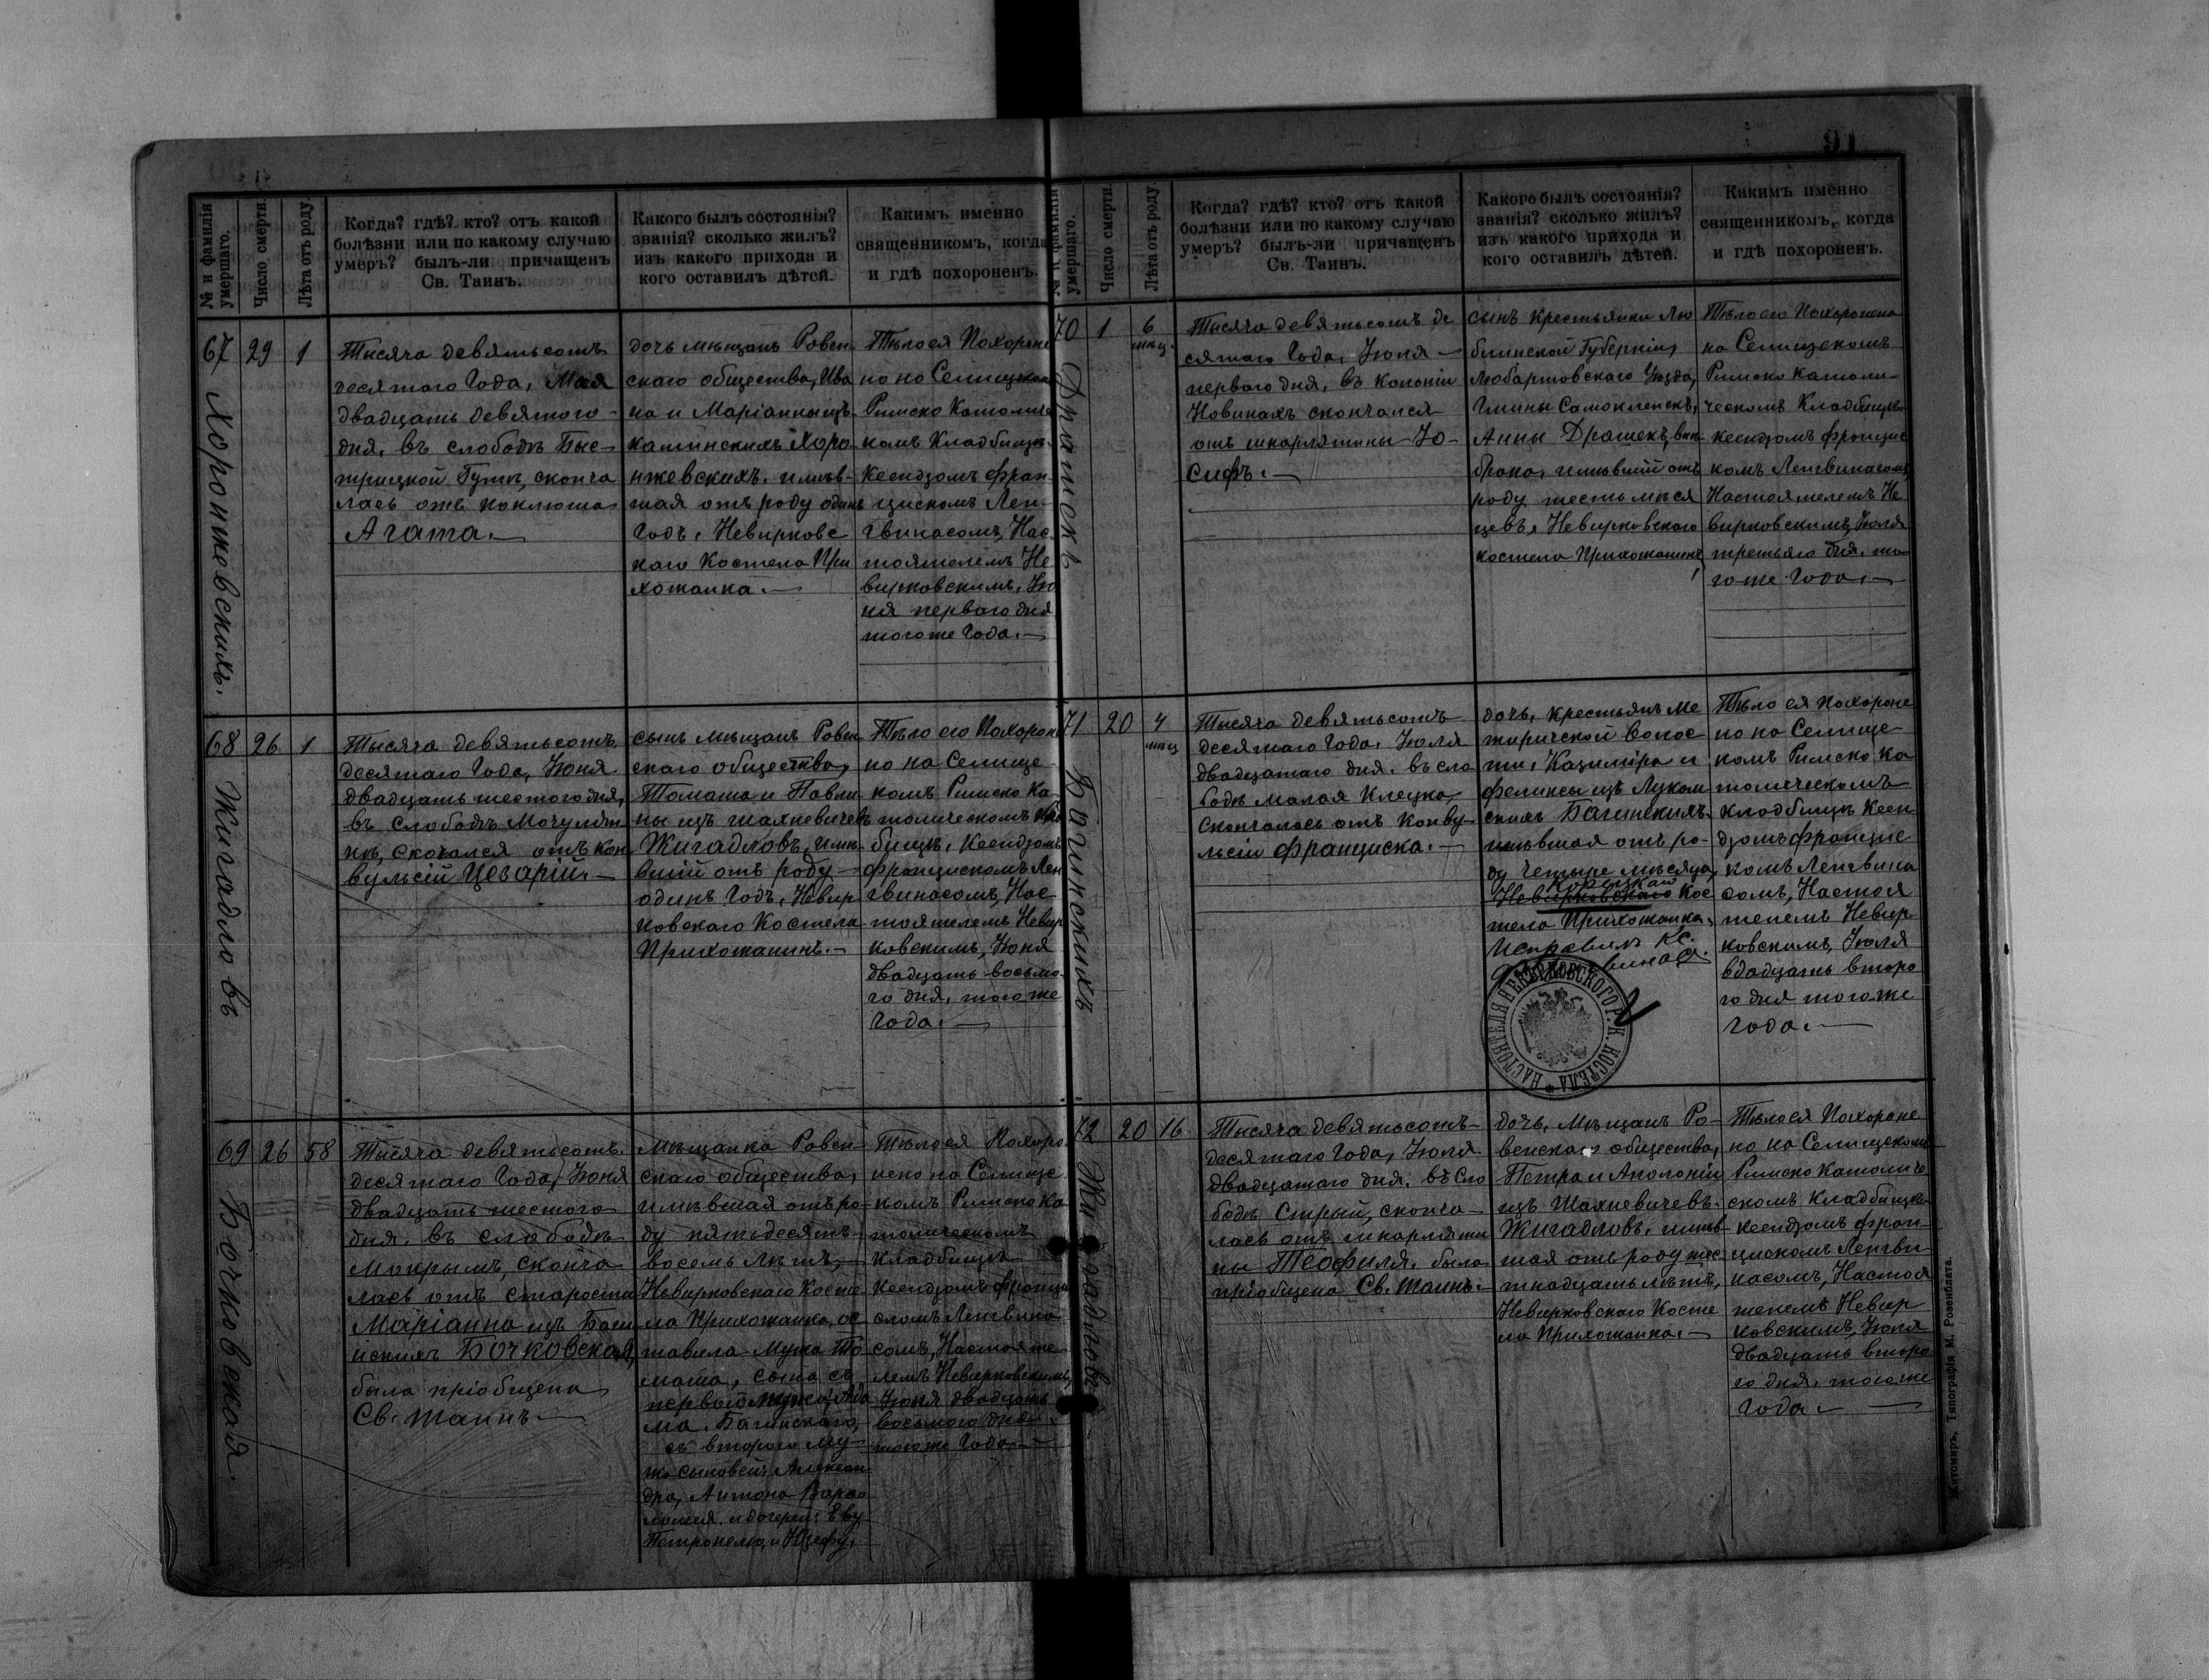 91
№ и фамилія умершаго.
Число смерти.
Лѣта отъ роду.
Когда? гдѣ? кто? отъ какой
болѣзни или по какому случаю
умеръ? былъ-ли причащенъ
Св. Таинъ.
Какого былъ состоянія?
званія? сколько жилъ?
изъ какого прихода и
кого оставилъ дѣтей.
Какимъ именно
священникомъ, когда
и гдѣ похороненъ.
67
Хоронжевскихъ.
29
1
Тысяча девятьсотъ
десятаго Года, Мая
двадцать девятого
дня, въ слободѣ Быс-
трицкой Гутѣ, сконча
лась отъ коклюша
Агата.
дочь мѣщанъ Ровен
скаго общества, Ива
на и Маріанны изъ
Хоро-
нжевскихъ, имѣв-
шая отъ роду одинъ
Годъ, Невирковс
каго Костела При
хожанка.
Тѣло ея Похороне
но на Селищском
Римско Католиче
комъ Кладбищѣ
Ксендзомъ Фран-
цискомъ Лен-
гвинасомъ, Нас
тоятелемъ Не
вирковскимъ, Ію
ня перваго дня
того же Года.
68
Жигадловъ
26
1
Тысяча девятьсотъ
десятаго Года, Іюня
двадцать шестого дня,
въ слободѣ Мочулян
кѣ, скочался отъ кон
вульсій Цезарій.
сынъ мѣщанъ Ровен
скаго общества,
Томаша и Павли
ны изъ Шахневичевъ
Жигадловъ, имѣ-
вшій отъ роду
одинъ Годъ, Невир
ковскаго Костела
Прихожанинъ.
Тѣло его Похороне
но на Селище
комъ Римско Ка-
толическомъ Клад
бищѣ, Ксендзомъ
Францискомъ Лен
гвинасомъ, Нас
тоятелемъ Невир
ковскимъ, Іюня
двадцать восьмо-
го дня, того же
Года.
69
Бочковская.
26
58
Тысяча девятьсотъ
десятаго Года, Іюня
двадцать шестого
дня, въ слободѣ
Мокрымъ, сконча
лась отъ старости
Маріанна изъ Баги
нскихъ Бочковская,
была пріобщена
Св. Таинъ
Мѣщанка Ровен-
скаго общества,
имѣвшая отъ ро-
ду пятьдесятъ
восемь лѣтъ,
Невирковскаго Косте
ла Прихожанка, ос
тавила Мужа То
маша, сына съ
перваго мужа Ада
ма Багинскаго,
съ второго му-
жа сыновей Алексан
дра, Антона Варѳо
ломея и дочерей: Еву
Петронелю, и Юзефу,
Тѣло ея Похоро
нено на Селище
комъ Римско Ка
толическомъ
Кладбищѣ
Ксендзомъ Францы
скомъ Ленгвина
сомъ, Настояте
лемъ Невирковскимъ,
Іюня двадцать
восьмого дня
того же Года.
№ и фамилія умершаго.
Число смерти.
Лѣта отъ роду.
Когда? гдѣ? кто? отъ какой
болѣзни или по какому случаю
умеръ? былъ-ли причащенъ
Св. Таинъ.
Какого былъ состоянія?
званія? сколько жилъ?
изъ какого прихода и
кого оставилъ дѣтей.
Какимъ именно
священникомъ, когда
и гдѣ похороненъ.
70
Драшекъ
1
6
мѣц.
Тысяча девятьсотъ де
сятаго Года, Іюля
перваго дня, въ колоніи
Новинахъ скончался
отъ шкарлятины Іо-
сифъ.
сынъ крестьянки Лю
блинской Губерніи,
Любартовскаго Уѣзда,
Гмины Самокленскъ,
Анны Драшекъ, внѣ
брака, имѣвшій отъ
роду шесть мѣся
цевъ, Невирковскаго
костела Прихожанинъ
Тѣло его Похоронено
на Селищскомъ
Римско Католи-
ческомъ Кладбищѣ
Ксендзомъ Францис
комъ Ленгвинасомъ,
Настоятелемъ Не
вирковскимъ, Іюля
третьяго дня, то
го же Года.
71
Багинскихъ
20
4
мѣц
Тысяча девятьсотъ
десятаго Года, Іюля
двадцатаго дня, въ сло
бодѣ Малая Клецка,
скончалась отъ конву
льсіи Франциска.
дочь, крестьянъ Ме
жиричской волос
ти, Казиміра и
Феликсы изъ Луком
скихъ Багинскихъ,
имѣвшая отъ ро-
ду четыре мѣсяца,
Корецкаго
Невирковскаго Кос
тела Прихожанка.
Исправилъ Кс.
НАСТОЯТЕЛЯ НЕВИРКОВСКОГО Р. К. КОСТЕЛА
Тѣло ея Похороне
но на Селище
комъ Римско Ка
толическомъ
Кладбищѣ Ксен
дзомъ Францис
комъ Ленгвина
сомъ, Настоя
телемъ Невир
ковскимъ, Іюля
вдадцать второ
го дня того же
Года.
72
Жигадловъ
20
16
Тысяча девятьсотъ
десятаго Года, Іюля
двадцатаго дня, въ Сло
бодѣ Стрый, сконча
лась отъ шкарляти
ны Теофиля, была
пріобщена Св. Таинъ.
дочь, Мѣщанъ Ро-
венскаго общества,
Петра и Аполоніи
изъ Шахневичевъ
Жигадловъ, имѣв
шая отъ роду шес
тнадцать лѣтъ,
Невирковскаго Косте
ла Прихожанка.
Тѣло ея Похороне
но на Селищском
Римско Католиче
скомъ Кладбищѣ
Ксендзомъ Фран-
цискомъ Ленгви
насомъ, Настоя
телемъ Невир
ковскимъ, Іюля
двадцать второ
го дня, того же
Года.
Житомиръ, Типографія М. Розенблата.